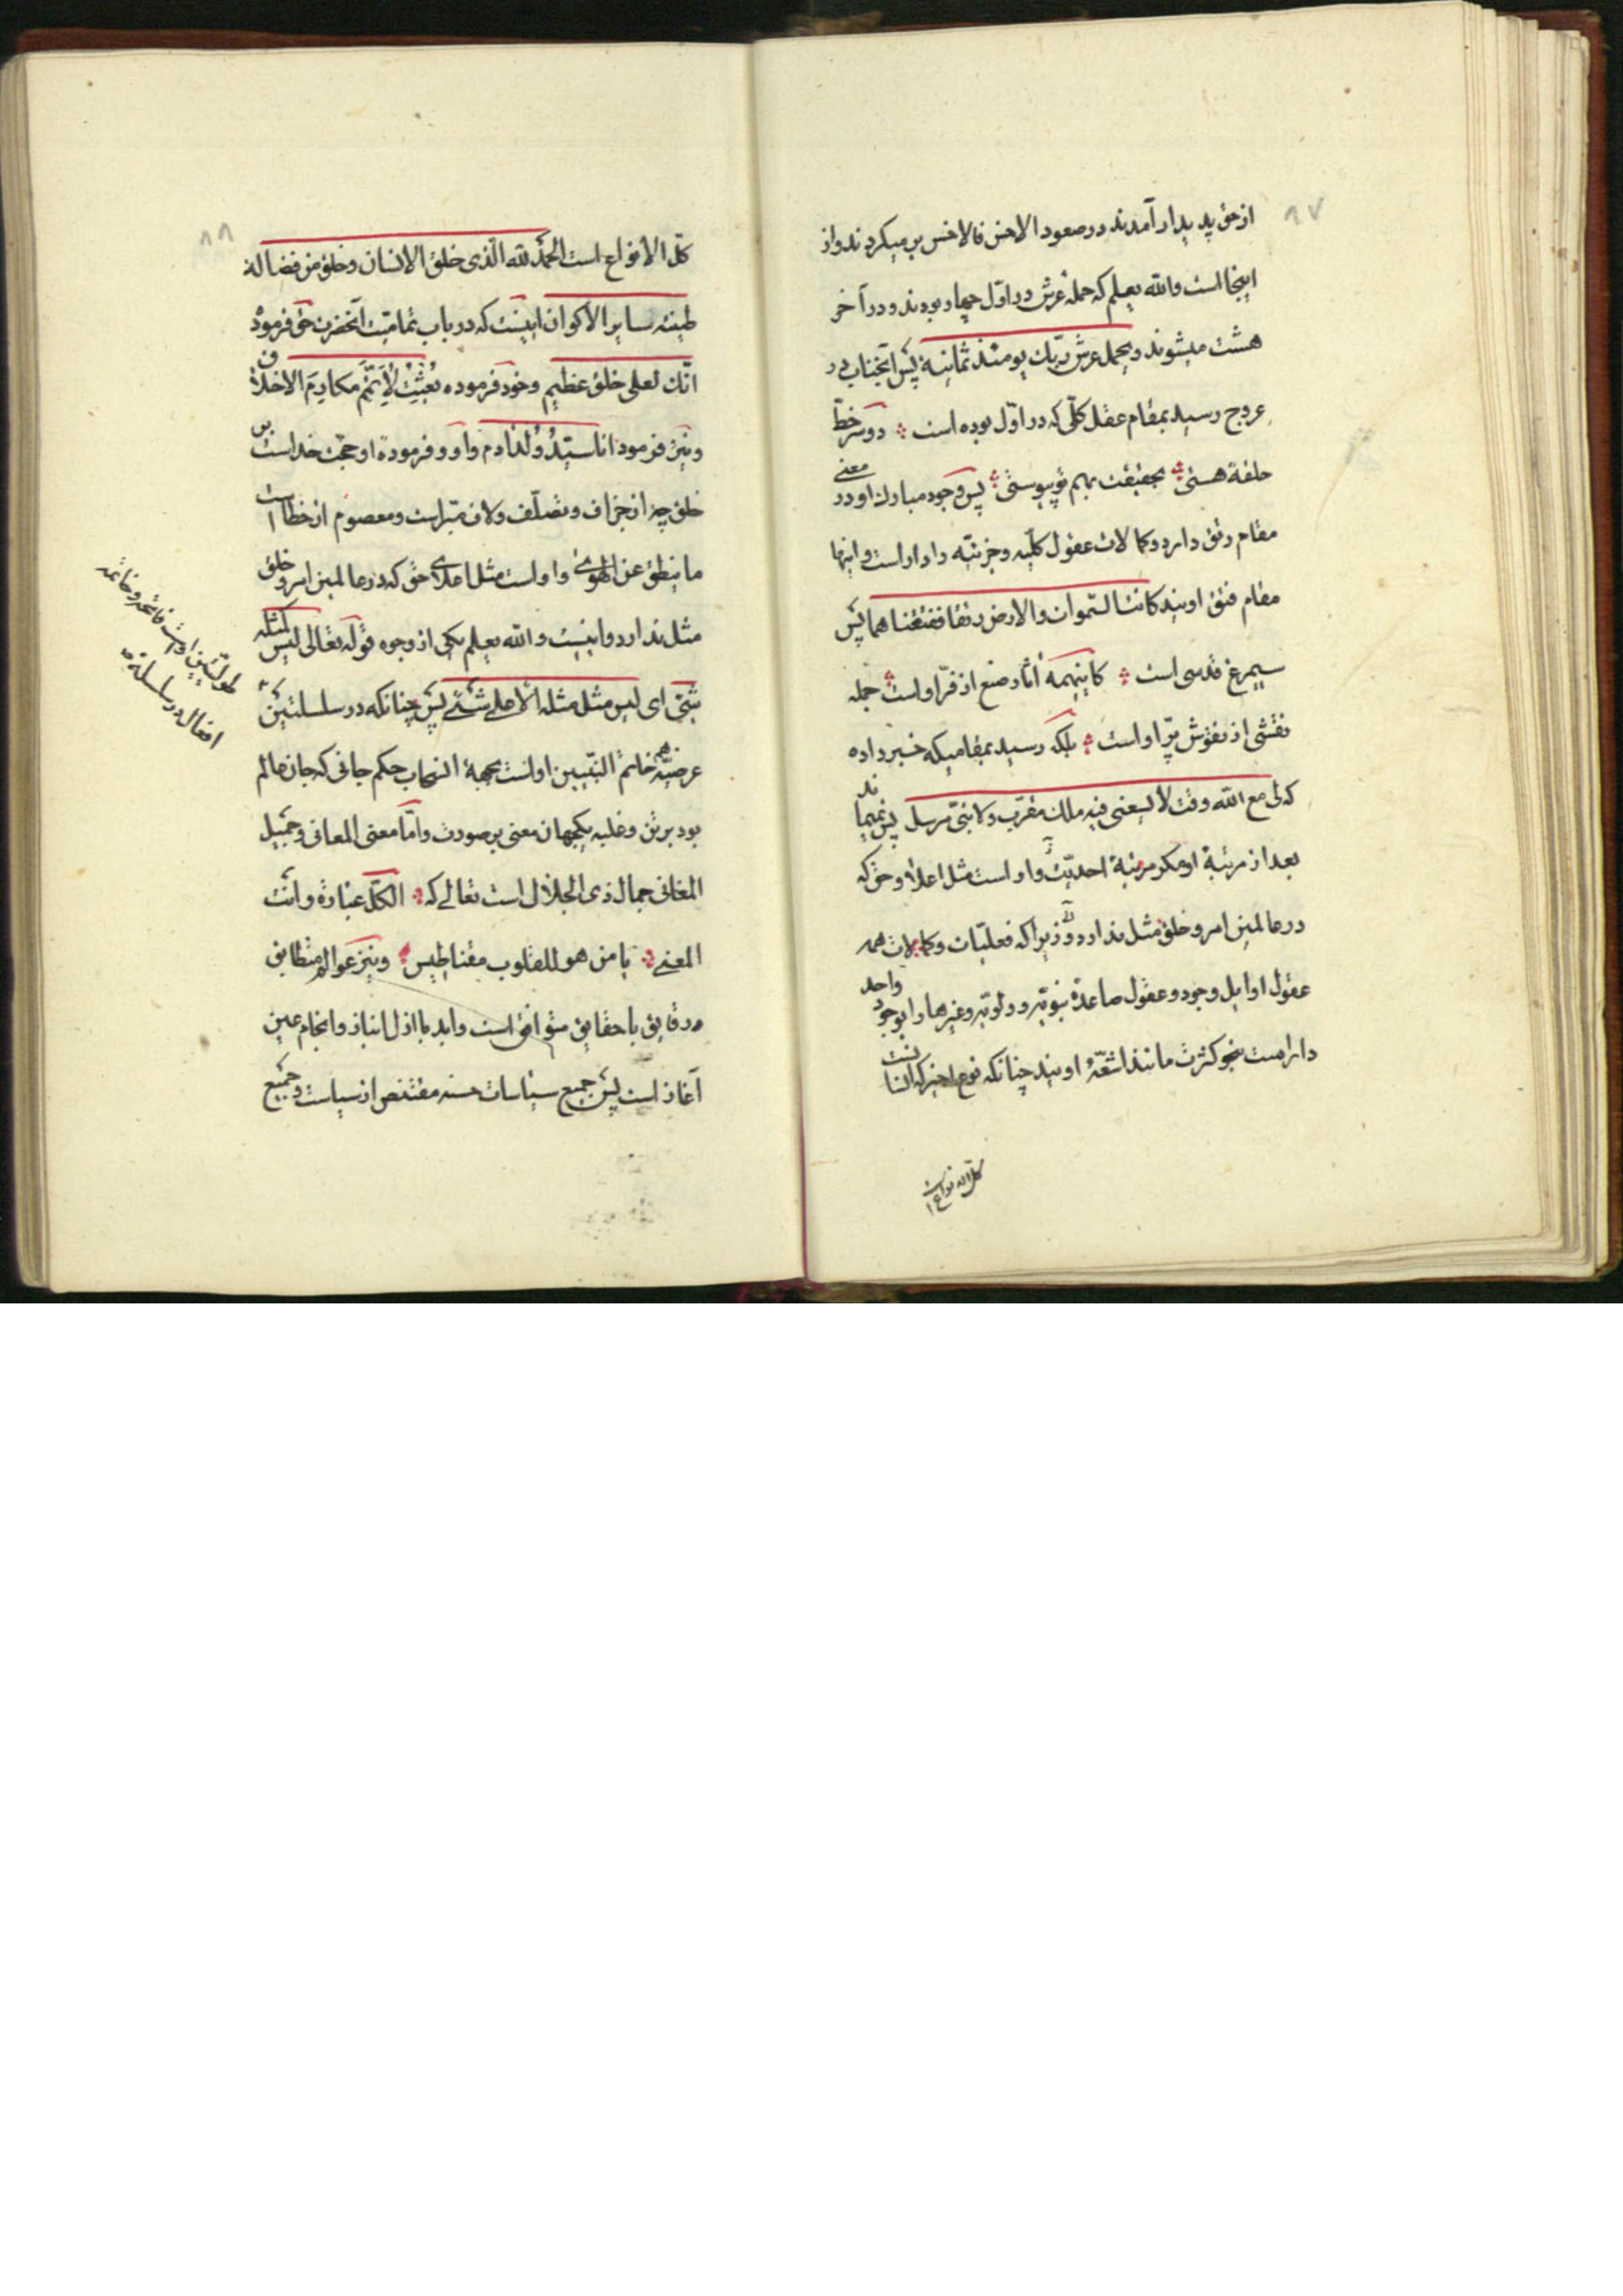 ۸۷
از حق پدیدار آمدند در صعود الاخس فالاخس بر میکردند و از
اینجا است والله یعلم که حملهٔ عرش در اوّل چهار بودند و در آخر
هشت میشوند و یحمل عرش ربّک یومئذ ثمانیة پس آنجناب در
عروج رسید بمقام عقل کلّی که در اوّل بوده است دو سر خطّ
حلقهٔ هستی بحقیقت بهم تو پیوستی پس وجود مبارک او در معنی
مقام رتق دارد و کمالات عقول کلّیه و جزئیّه را دارا است و اینها
مقام فتق اویند کانتا السّموات والارض رتقا ففتقناهما پس
سیمرغ قدسی است کاینهمه آثار صنع از فرّ اوست جمله
نقشی از نقوش پرّ اواست بلکه رسید بمقامیکه خبر داده
که لی مع الله وقت لا یسعنی فیه ملک مقرّب ولا نبیّ مرسل پس نمیماند
بعد از مرتبهٔ او مگر مرتبهٔ احدیّت و او است مثل اعلاء حق که
در عالمین امر و خلق مثل ندارد زیرا که فعلیّات و کمالات همه
عقول اوایل وجود و عقول صاعدهٔ نبویّه و ولویّه و غیرها را بوجود واحد
دارا است بنحو کثرت مانند اشعّهٔ اویند چنانکه نوع اخیر که انسانست
کلّ الانواع است
۸۸
کلّ الانواع است الحمد لله الّذی خلق الانسان و خلق من فضالة
طینته سایر الاکوان اینست که در باب تمامیّت آنحضرت حق فرمود
انّک لعلی خلق عظیم و خود فرموده بُعِثتُ لِاُتمِّمَ مکارِمَ الاخلاق
و نیز فرمود انا سیّدُ وُلد آدم و او فرموده او حجّت خداست بر
خلق چه از جزاف و تصلّف و لاف مبرّاست و معصوم از خطا است
ما ینطق عن الهوی و اواست مثل اعلای حق که در عالمین امر و خلق
مثل ندارد و اینست والله یعلم یکی از وجوه قوله تعالی لیس کمثله
شیء ای لیس مثل مثله الاعلی شیء پس چنانکه در سلسلتین
عرضیّه هم خاتم النّبیین اواست بحکم جانی که جان عالم
بود بر تن و غلبه یکجهان معنی بر صورت و امّا معنی المعانی و جمیل
المعانی جمال ذی الجلال است تعالی که الکلّ عبارة و انت
المعنی یا من هو للقلوب مقناطیس و نیز عوالم متطابق
و رقایق با حقایق متوافق است و ابد با ازل انباز و انجام عین
آغاز است پس جمیع سیاسات حسنه مقتنص از سیاست و جمیع
طولیّتین اواست فاتحه و خاتمه
افعال در سلسلهٔ